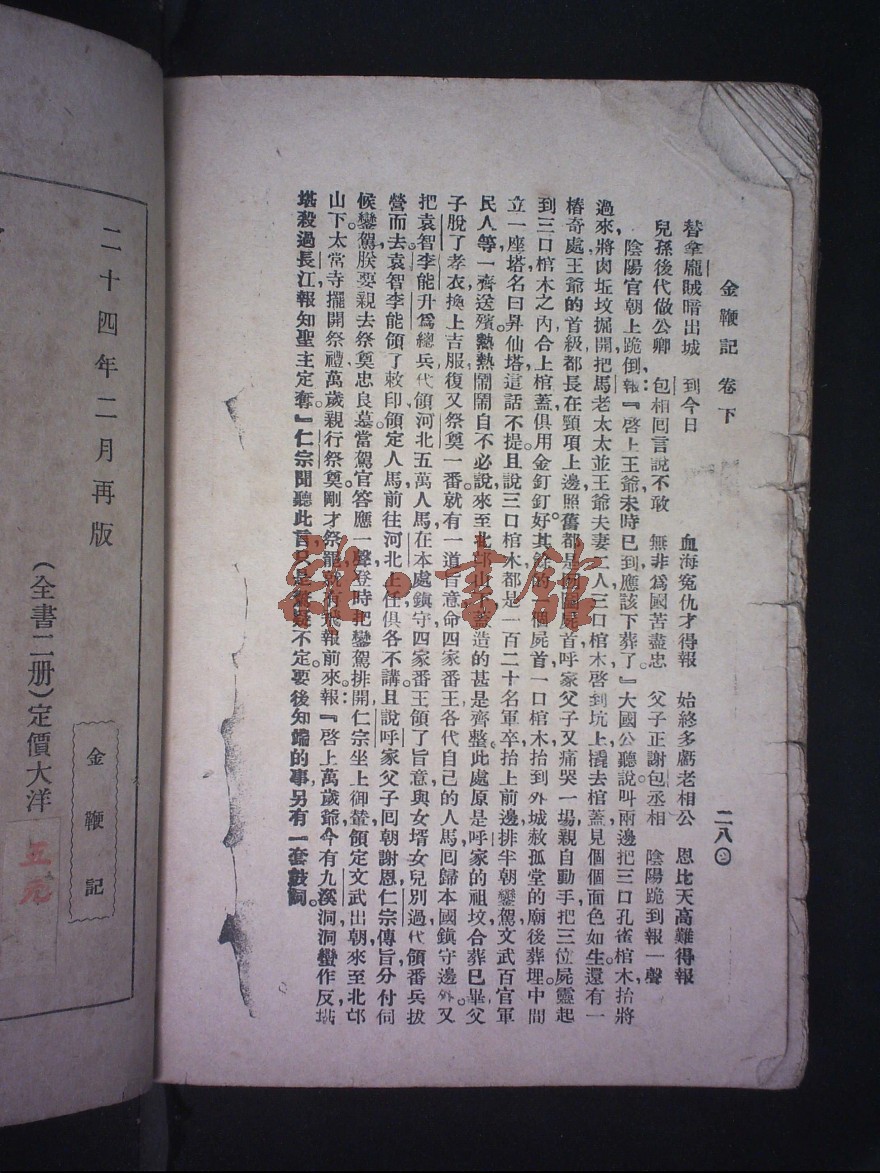 金鞭記 卷下 二八〇
替拿龐賊暗出城 到今日 血海冤仇才得報 始終多虧老相公 恩比天高難得報
兒孫後代做公卿 包相回言說不敢 無非爲國苦盡忠 父子正謝包丞相 陰陽跪到報一聲
陰陽官朝上跪倒，報：『啓上王爺，未時已到，應該下葬了。』大國公聽說，叫兩邊把三口孔雀棺木抬將
過來，將肉坵墳掘開，把馬老太太並王爺夫妻二人三口棺木啓到坑上，撬去棺蓋，見個個面色如生。還有一
樁奇處，王爺的首級都長在頸項上邊，照舊都是囫圇屍首，呼家父子又痛哭一場，親自動手把三位屍靈起
到三口棺木之內，合上棺蓋，俱用金釘釘好。其餘的 個屍首，一口棺木抬到外城赦孤堂的廟後葬埋，中間
立一座塔，名曰昇仙塔，這話不提。且說三口棺木都是一百二十名軍卒抬上，前邊排半朝鑾駕，文武百官軍
民人等一齊送殯，熱熱鬧鬧，自不必說。來至北邙山下，蓋造的甚是齊整，此處原是呼家的祖墳，合葬已畢，父
子脫了孝衣，換上吉服，復又祭奠一番，就有一道旨意，命四家番王各代自己的人馬，回歸本國，鎮守邊外。又
把袁智李能升爲總兵，代領河北五萬人馬，在本處鎮守。四家番王領了旨意，與女壻女兒別過，代領番兵拔
營而去。袁智李能領了敕印，領定人馬，前往河北上任，俱各不講。且說呼家父子回朝謝恩，仁宗傳旨分付伺
候鑾駕，朕要親去祭奠忠良墓，當駕官答應一聲，登時把鑾駕排開，仁宗坐上御輦，領定文武出朝，來至北邙
山下，太常寺擺開祭禮，萬歲親行祭奠，剛才祭罷，就有飛報前來，報：『啓上萬歲爺，今有九溪洞洞蠻作反，堪
堪殺過長江，報知聖主定奪。』仁宗聞聽此言，只是驚疑不定，要後知端的事，另有一套鼓詞。
二十四年二月再版
（全書二册）定價大洋
五元
金鞭記